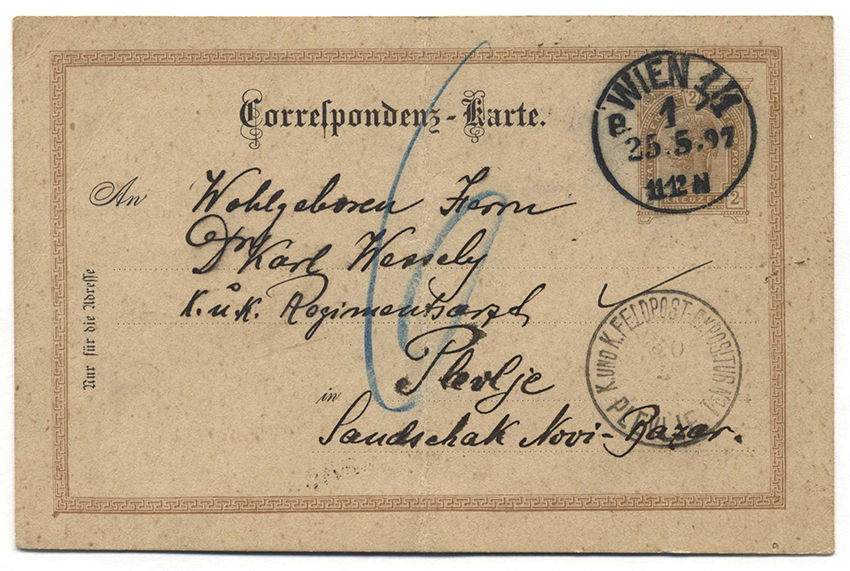 Correspondenz-Karte.
WIEN 1/1
1
25.5.97
11.12 N
2
KREUZER
2
An
Wohlgeboren Herrn
Dr Karl Wessely
K. u. K. Regimentsarzt
Plevlje
in
Sandschak Novi-Bazar.
Nur für die Adresse
6
K. UND K. FELDPOST-EXPOSITUR
PLEVLJE